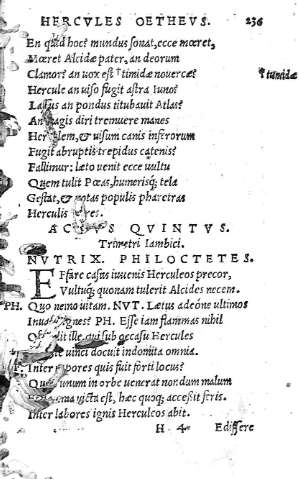 HERCVLES OETHEVS. 236
En quid hoc? mundus sonat, ecce mœret,
Mœret Alcidæ pater, an deorum
Clamor? an uox est timidæ nouercæ? timidæ
Hercule an uiso fugit astra Iuno?
an pondus titubauit Atlas?
An magis diri tremuere manes
& uisum canis inferorum
Fugit abruptis trepidus catenis?
Fallimur: læto uenit ecce uultu
Quem tulit Pœas, humerisq; tela
Gestat, & notas populis pharetras
Herculis
ACTVS QVINTVS.
Trimetri Iambici.
NVTRIX. PHILOCTETES.
EFfare casus iuuenis Herculeos precor,
Vultuq; quonam tulerit Alcides necem.
PH. Quo nemo uitam. NVT. Lætus adeóne ultimos
ignes? PH. Esse iam flammas nihil
ille, qui sub occasu Hercules
uinci docuit indomita omnia.
Inter uapores quis fuit forti locus?
unum in orbe uenerat nondum malum
uicta est, hæc quoq; accessit feris.
Inter labores ignis Herculeos abit.
H 4 Edissere